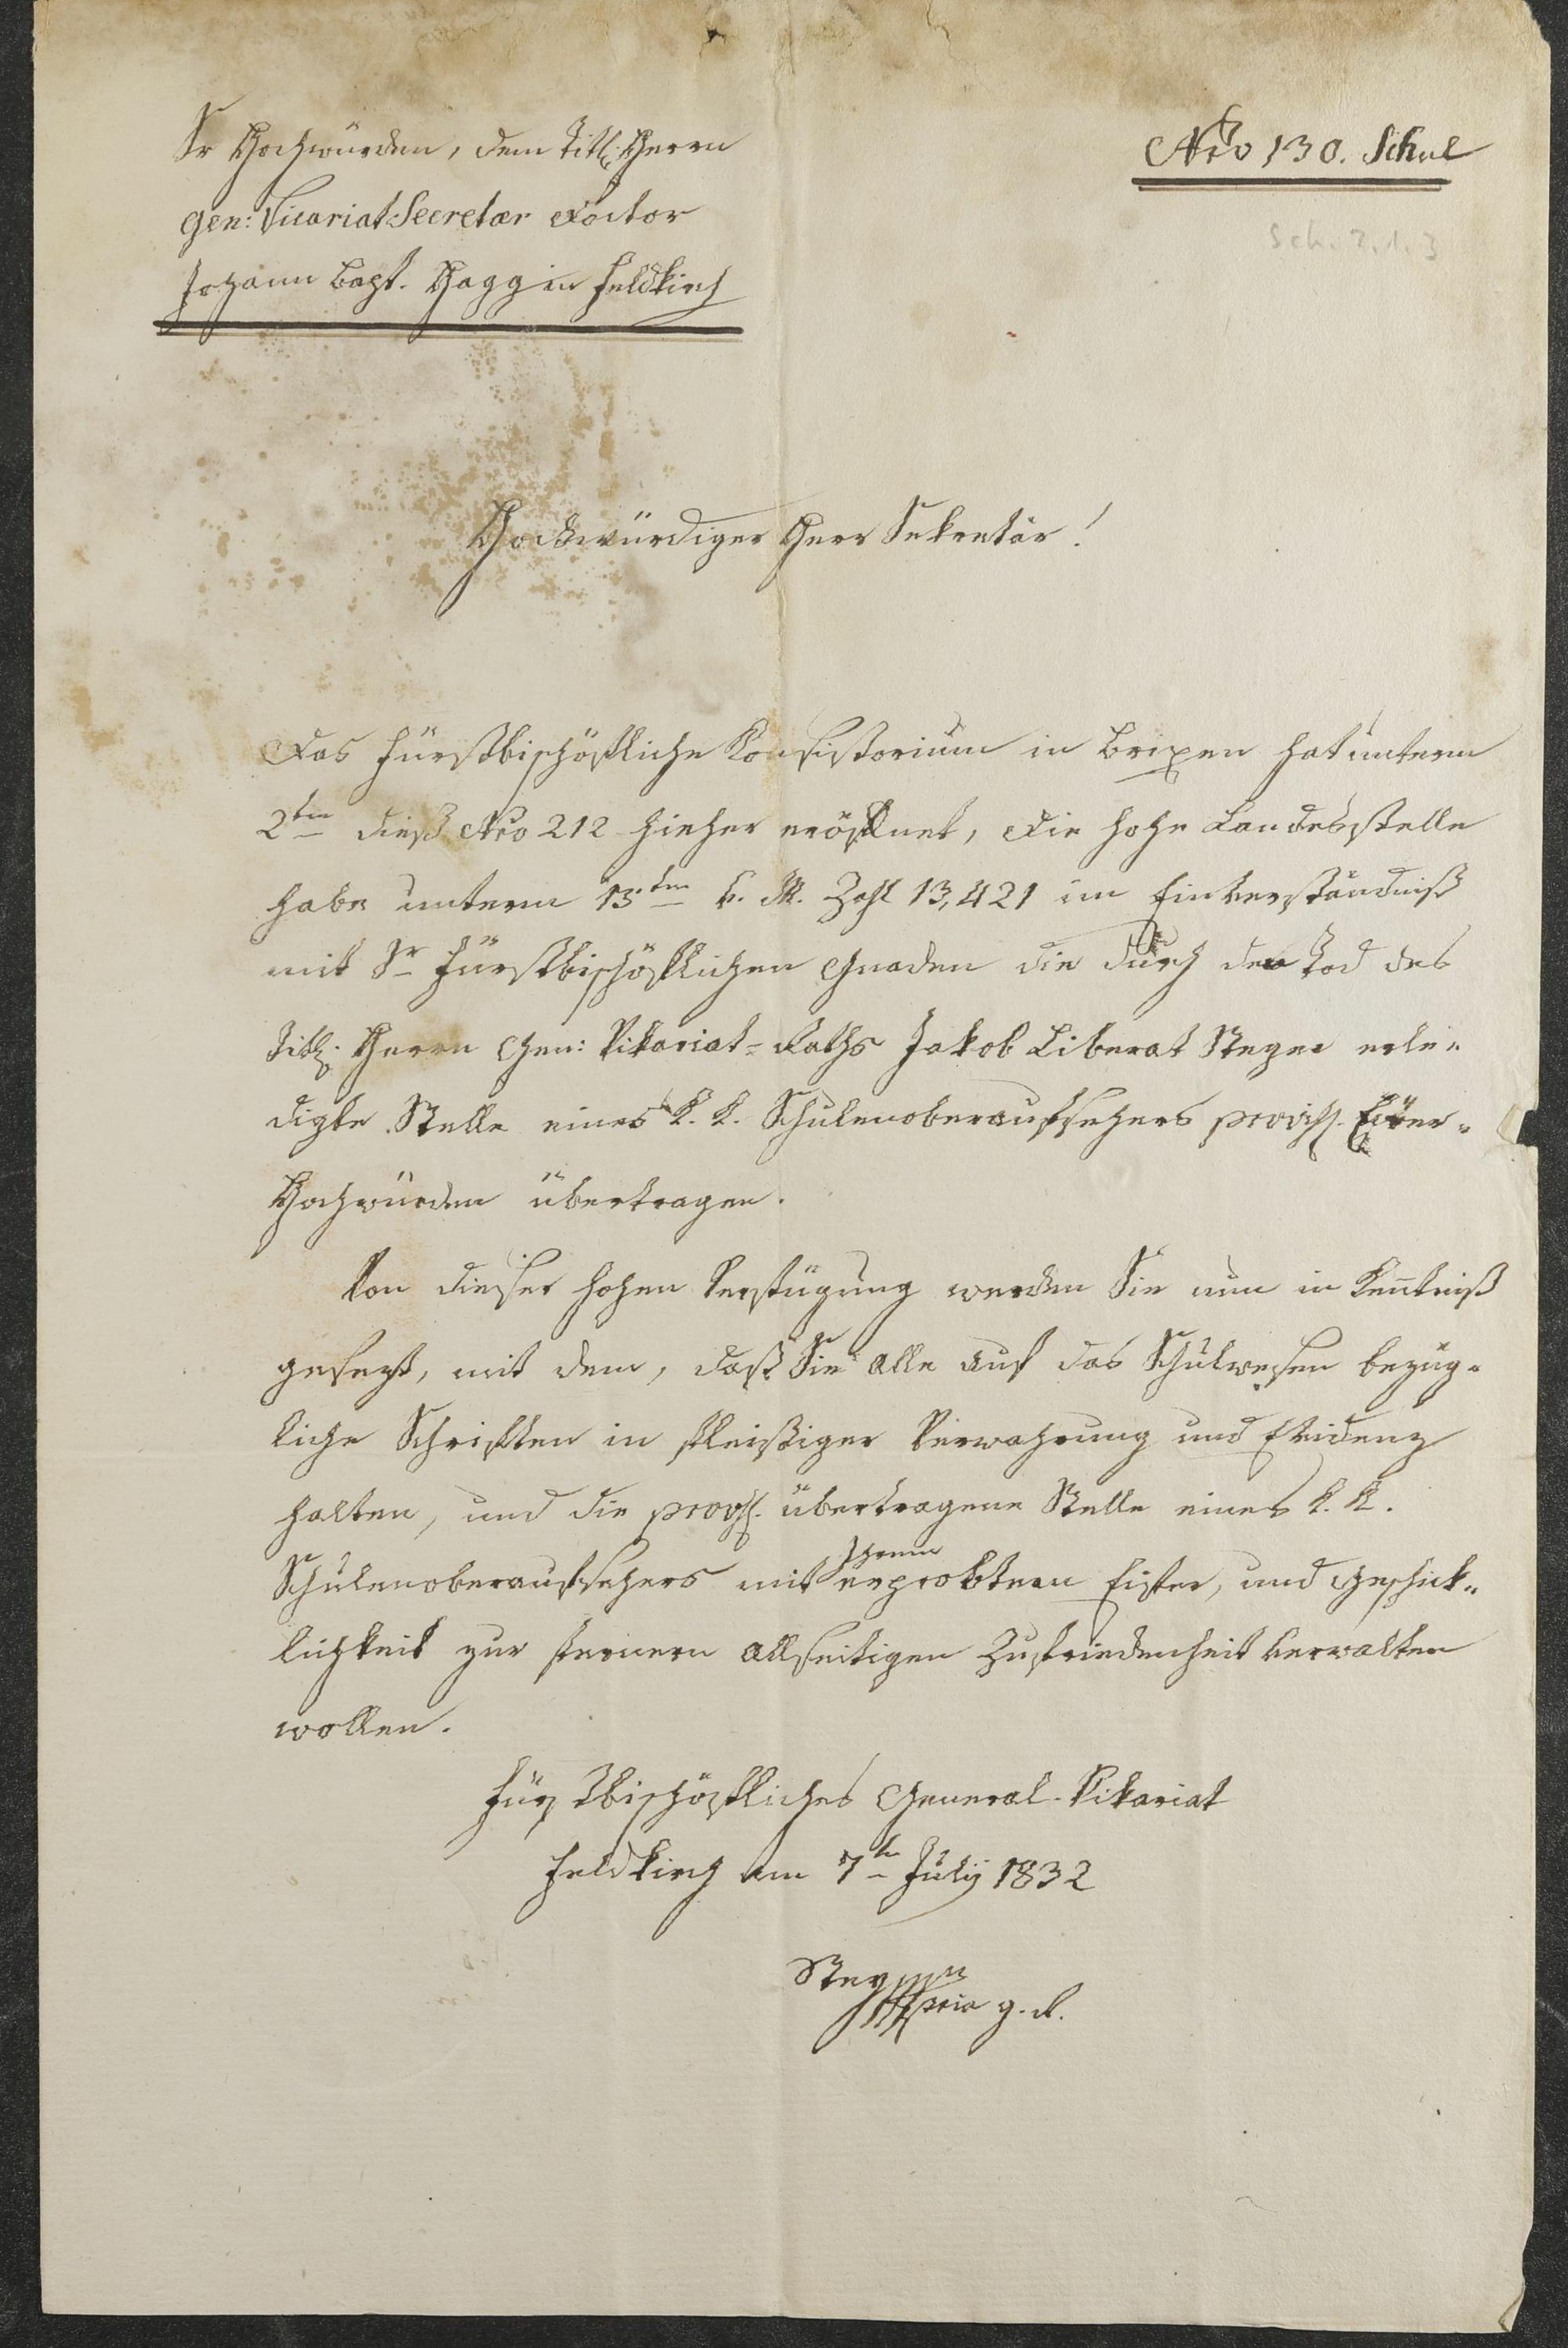 Sr Hochwürden, dem Titl. Herrn
Gen: Vicariat-Secretaer Doctor
Johann Bapt. Hagg in Feldkirch
Nro 130. Schul
Sch. 2. 1. 3
Hochwürdiger Herr Sekretär!
Das fürstbischöfliche Konsistorium in Brixen hat unterm
2ten dieß Nro 212 hieher eröffnet, die hohe Landesstelle
habe unterm 15ten v. M. Zahl 13,421 im Einverständniß
mit Sr fürstbischöflichen Gnaden die durch den Tod des
Titl. Herrn Gen: Vikariat-Raths Jakob Liberat Steger erle-
digte Stelle eines k. k. Schulenoberaufsehers provis. Euer-
Hochwürden übertragen.
Von dieser hohen Verfügung werden Sie nun in Kenntniß
gesezt, mit dem, daß Sie alle auf das Schulwesen bezüg-
liche Schriften in fleißiger Verwahrung und Evidenz
halten, und die provis. übertragene Stelle eines k. k.
Schulenoberaufsehers mit Ihrem erprobten Eifer, und Geschick-
lichkeit zur fernern allseitigen Zufriedenheit verwalten
wollen.
Fürstbischöfliches General-Vikariat
Feldkirch am 7ten July 1832